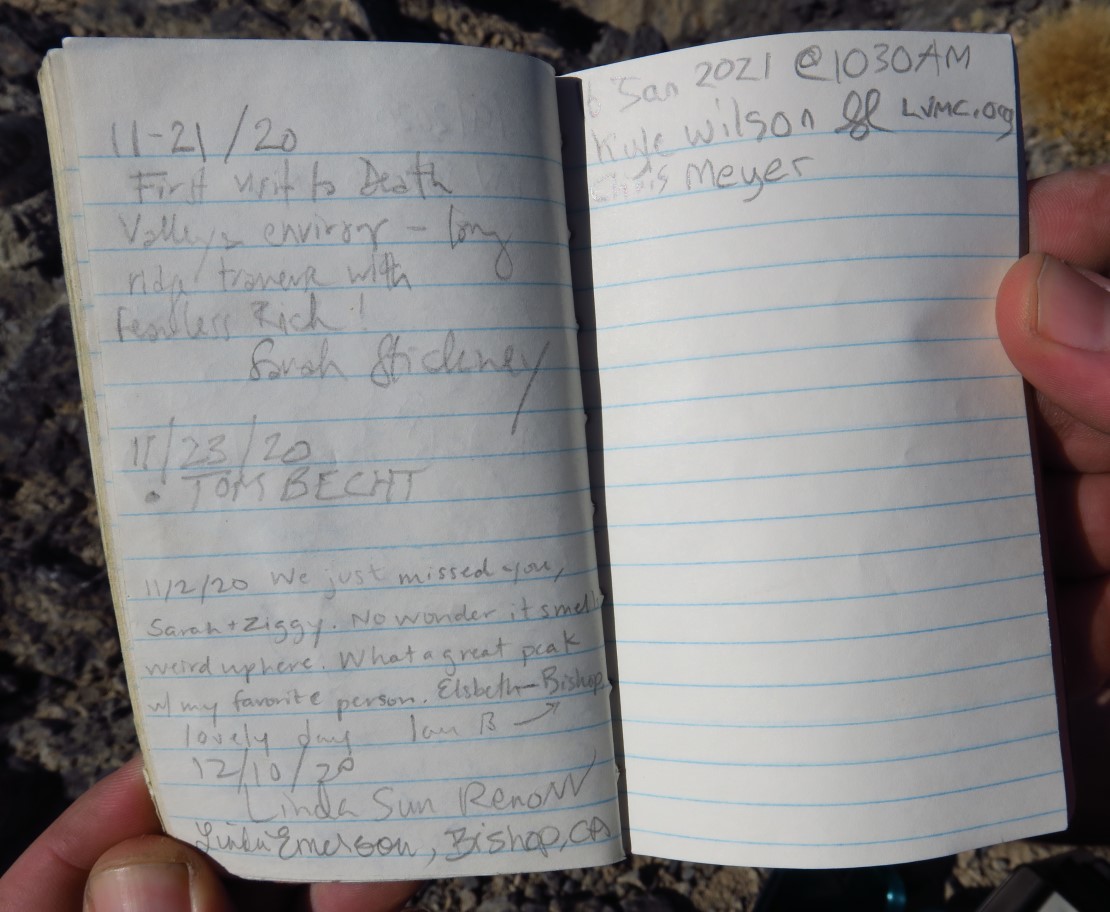 11-21/20
First visit to Death
Valley environ - long
ridge traverse with
Fearless Rich!
Sarah Stickney
11/23/20
• TOM BECHT
11/2/20 We just missed you,
Sarah + Ziggy. No wonder it smells
weird up here. What a great peak
w/ my favorite person. Elsbeth - Bishop
lovely day Ian B →
12/10/20
Linda Sun Reno NV
Linda Emerson, Bishop, CA
6 Jan 2021 @ 1030AM
Kyle Wilson LVMC.org
Chris Meyer